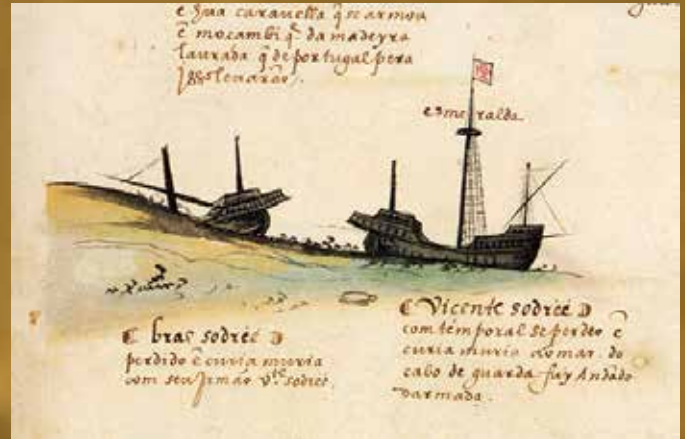 e sua caravella q̃ se armou
ẽ mocambiq̃ da madeyra
laurada q̃ de portugal pera
jsso levarão.
esmeralda
☾ bras sodreé ☽
perdido ẽ curia muria
com seu jrmão vte sodreé
☾ Vicente sodreé ☽
com temporal se perdeo ẽ
curia muria do mar do
cabo de guarda fuy Andãdo
darmada.